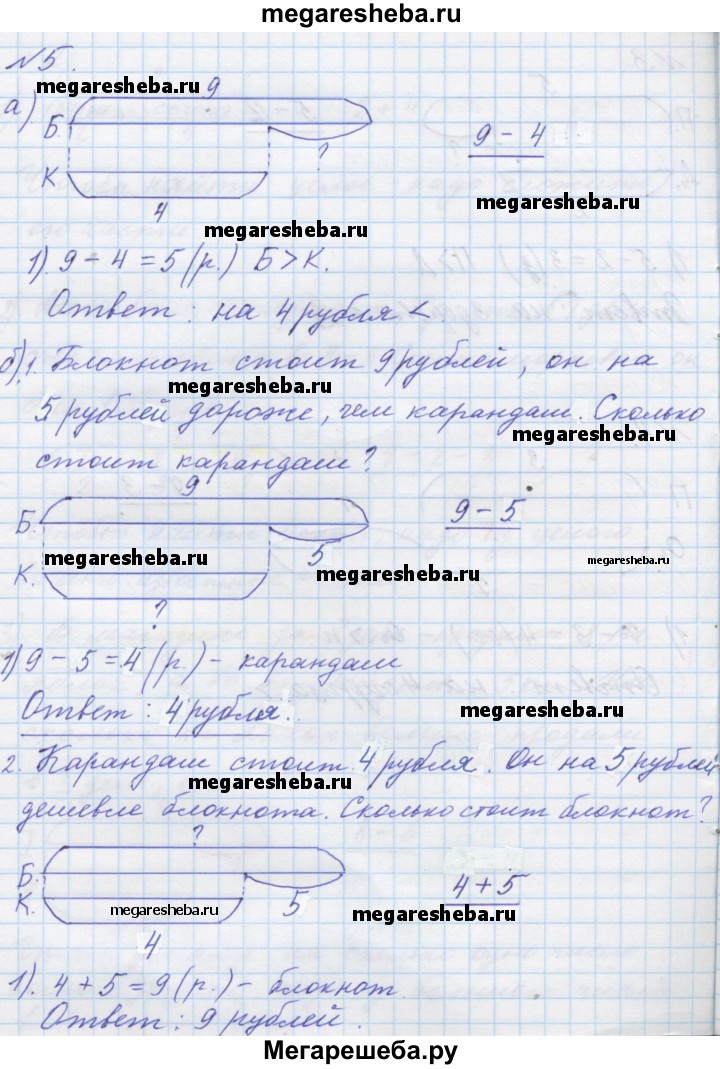 megaresheba.ru
№5.
megaresheba.ru
а)
9
Б.
?
9 - 4
К
4
megaresheba.ru
megaresheba.ru
1). 9 - 4 = 5 (р.) Б > К.
Ответ: на 4 рубля <
б) 1. Блокнот стоит 9 рублей, он на
megaresheba.ru
5 рублей дороже, чем карандаш. Сколько
megaresheba.ru
стоит карандаш?
9
Б.
9 - 5
5
megaresheba.ru
megaresheba.ru
megaresheba.ru
К.
?
1) 9 - 5 = 4 (р.) - карандаш
Ответ: 4 рубля.
megaresheba.ru
2. Карандаш стоит 4 рубля. Он на 5 рублей
megaresheba.ru
дешевле блокнота. Сколько стоит блокнот?
?
Б.
4 + 5
К.
5
megaresheba.ru
megaresheba.ru
4
1). 4 + 5 = 9 (р.) - блокнот
Ответ: 9 рублей.
Мегарешеба.ру